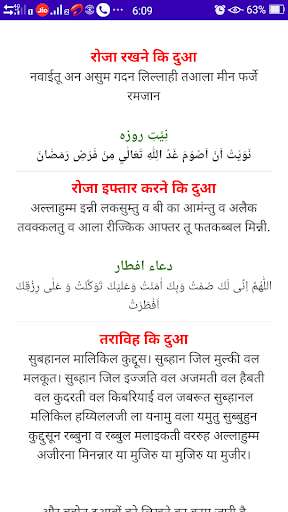 6:09
63%
रोजा रखने कि दुआ
नवाईतू अन असुम गदन लिल्लाही तआला मीन फर्जे
रमजान
نِيَّتِ روزہ
نَوَيْتُ اَنْ اَصُوْمَ غَدً الِلّٰهِ تَعَالٰي مِنْ فَرْضِ رَمَضَانَ
रोजा इफ्तार करने कि दुआ
अल्लाहुम्म इन्नी लकसुम्तु व बी का आमंन्तु व अलैक
तवक्कलतु व आला रीज्किक आफ्तर तू फतकब्बल मिन्नी.
دعاء افطار
اَللّٰهُمَّ اِنِّی لَكَ صُمْتُ وَبِكَ اٰمَنْتُ وَعَلَيْكَ تَوَكَّلْتُ وَ عَلٰى رِزْقِكَ
اَفْطَرْتُ
तराविह कि दुआ
सुबहानल मालिकिल कुद्दूस। सुब्हान जिल मुल्की वल
मलकूत। सुब्हान जिल इज्जति वल अजमती वल हैबती
वल कुदरती वल किबरियाई वल जबरूत सुब्हानल
मलिकिल हय्यिललजी ला यनामु वला यमुतु सुब्बुहुन
कुद्दुसून रब्बुना व रब्बुल मलाइकती वररुह अल्लाहुम्म
अजीरना मिनन्नार या मुजिरु या मुजिरु या मुजीर।